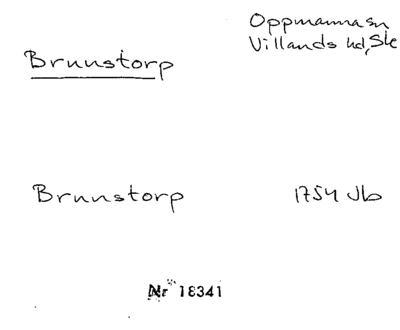 Oppmanna sn
Villands hd, Sk
Brunnstorp
Brunnstorp 1754 Jb
Nr 18341